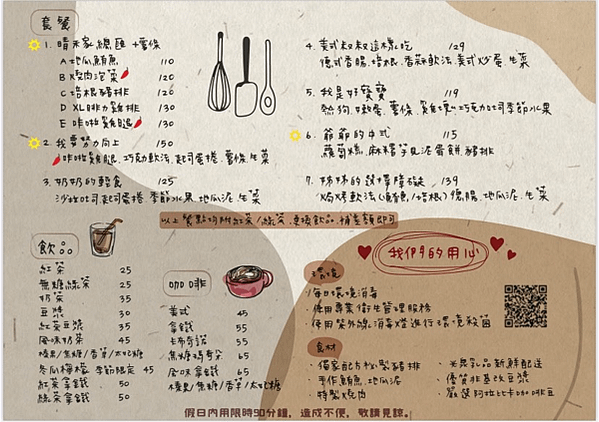 套餐
1. 晴禾家總匯+薯條
A 地瓜鮪魚 110
B 燒肉泡菜 120
C 培根豬排 120
D XL啡力雞排 130
E 咔啦雞腿 130
2. 我要努力向上 150
咔啦雞腿.巧克軟法.起司蛋捲.薯條.生菜
3. 奶奶的輕食 125
沙拉吐司起司蛋捲.季節水果.地瓜泥.生菜
4. 美式叔叔這樣吃 129
德式香腸.培根.香蒜軟法.美式炒蛋.生菜
5. 我是好寶寶 119
熱狗.嫩蛋.薯條.雞塊.巧克力吐司季節水果
6. 爺爺的中式 115
蘿蔔糕.麻糬芋泥蛋餅.豬排
7. 姊姊的選擇障礙 139
焗烤軟法(鮪魚/培根).德腸.地瓜泥.生菜
以上餐點均附紅茶/綠茶.更換飲品.補差額即可
飲品
紅茶 25
無糖綠茶 25
奶茶 35
豆漿 30
紅茶豆漿 35
風味奶茶 45
榛果/焦糖/香草/太妃糖
冬瓜檸檬 季節限定 45
紅茶拿鐵 50
綠茶拿鐵 50
咖啡
美式 45
拿鐵 55
卡布奇諾 55
焦糖瑪奇朵 65
風味拿鐵 65
榛果/焦糖/香草/太妃糖
我們的用心
環境
·每日環境消毒
·使用專業衛生管理服務
·使用紫外線消毒燈進行環境殺菌
食材
·獨家配方秘製豬排
·手作鮪魚.地瓜泥
·特製燒肉
·光泉乳品新鮮配送
·優質非基改豆漿
·嚴選阿拉比卡咖啡豆
假日內用限時90分鐘，造成不便，敬請見諒。